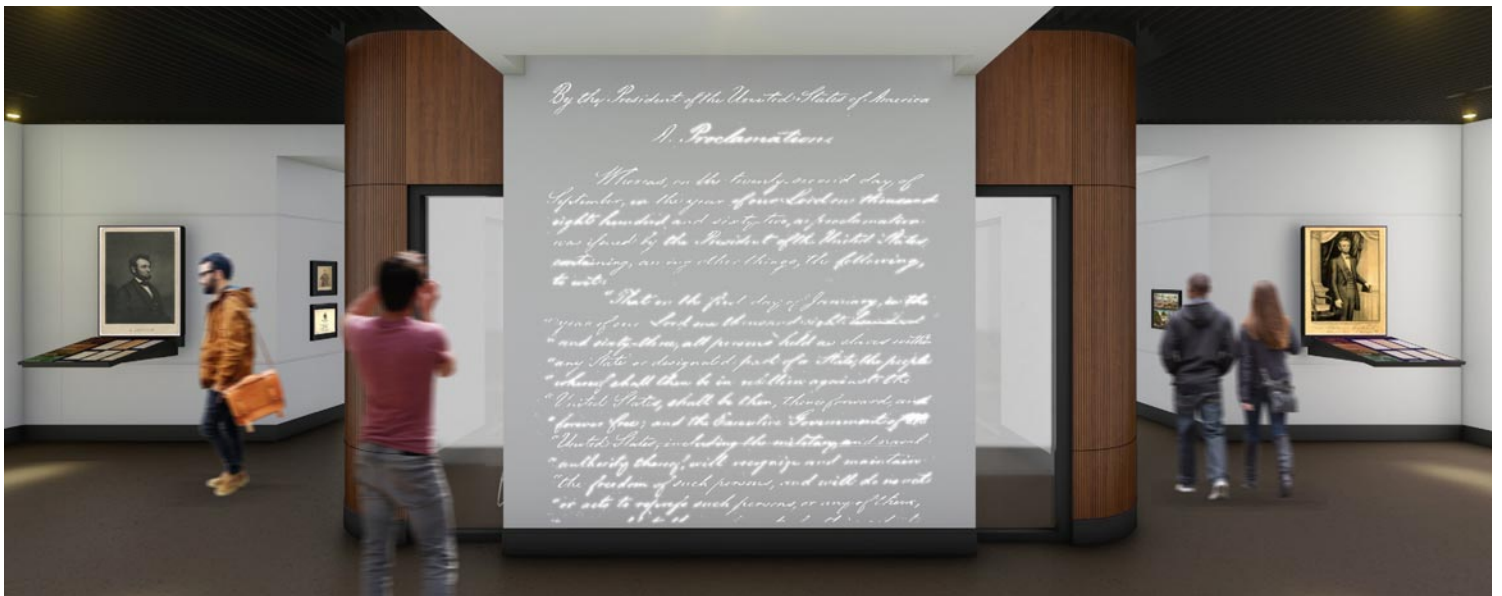 By the President of the United States of America
A. Proclamation.
Whereas, on the twenty-second day of
September, in the year of our Lord one thousand
eight hundred and sixty two, a proclamation
was issued by the President of the United States,
containing, among other things, the following,
to wit:
"That on the first day of January, in the
"year of our Lord one thousand eight hundred
"and sixty-three, all persons held as slaves within
"any State or designated part of a State, the people
"whereof shall then be in rebellion against the
"United States, shall be then, thenceforward, and
"forever free; and the Executive Government of the
"United States, including the military and naval
"authority thereof, will recognize and maintain
"the freedom of such persons, and will do no act
"or acts to repress such persons, or any of them,